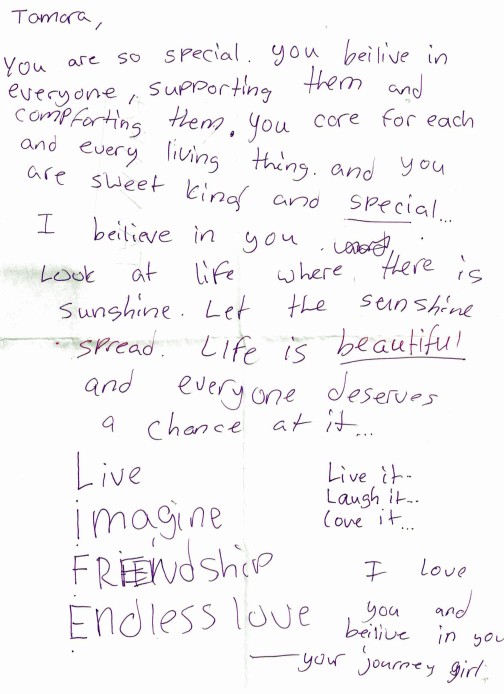 Tamara,
You are so special. you beilive in
everyone, supporting them and
compforting them. you care for each
and every living thing. and you
are sweet kind and special...
I beilieve in you.
Look at life where there is
sunshine. Let the sunshine
spread. Life is beautiful
and everyone deserves
a chance at it...
Live
imagine
FRIENdship
Endless love
Live it..
Laugh it...
Love it...
I love
you and
beilive in you
— your journey girl.